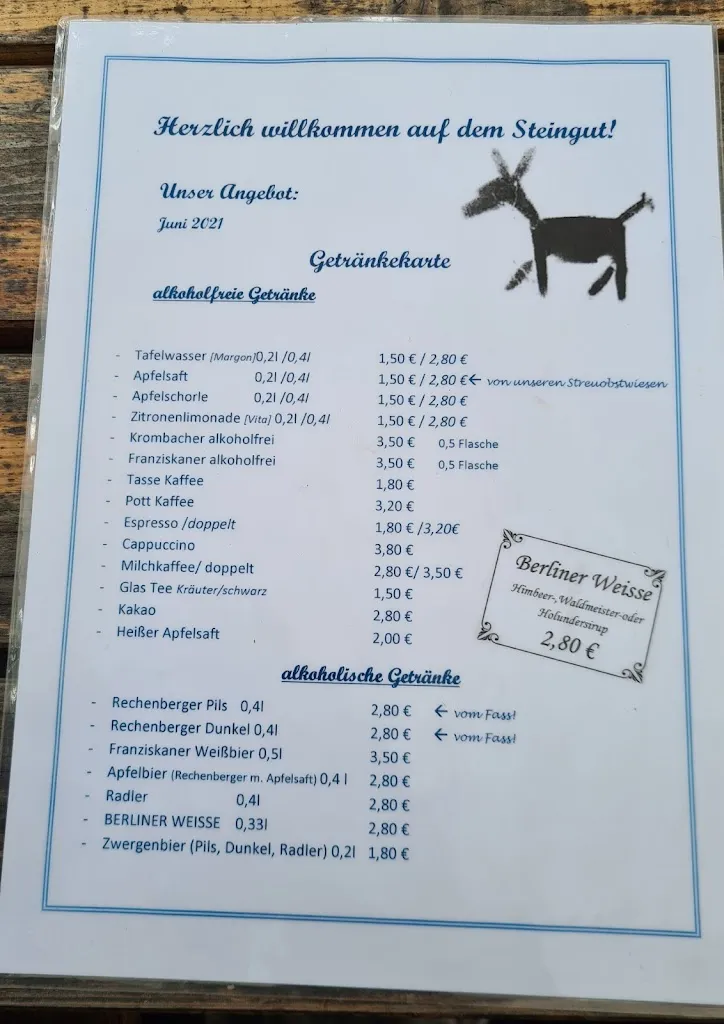 Herzlich willkommen auf dem Steingut!
Unser Angebot:
Juni 2021
Getränkekarte
alkoholfreie Getränke
- Tafelwasser [Margon]0,2l /0,4l 1,50 € / 2,80 €
- Apfelsaft 0,2l /0,4l 1,50 € / 2,80 €← von unseren Streuobstwiesen
- Apfelschorle 0,2l /0,4l 1,50 € / 2,80 €
- Zitronenlimonade [Vita] 0,2l /0,4l 1,50 € / 2,80 €
- Krombacher alkoholfrei 3,50 € 0,5 Flasche
- Franziskaner alkoholfrei 3,50 € 0,5 Flasche
- Tasse Kaffee 1,80 €
- Pott Kaffee 3,20 €
- Espresso /doppelt 1,80 € /3,20€
- Cappuccino 3,80 €
- Milchkaffee/ doppelt 2,80 €/ 3,50 €
- Glas Tee Kräuter/schwarz 1,50 €
- Kakao 2,80 €
- Heißer Apfelsaft 2,00 €
Berliner Weisse
Himbeer-,Waldmeister-oder
Holundersirup
2,80 €
alkoholische Getränke
- Rechenberger Pils 0,4l 2,80 € ← vom Fass!
- Rechenberger Dunkel 0,4l 2,80 € ← vom Fass!
- Franziskaner Weißbier 0,5l 3,50 €
- Apfelbier (Rechenberger m. Apfelsaft) 0,4 l 2,80 €
- Radler 0,4l 2,80 €
- BERLINER WEISSE 0,33l 2,80 €
- Zwergenbier (Pils, Dunkel, Radler) 0,2l 1,80 €